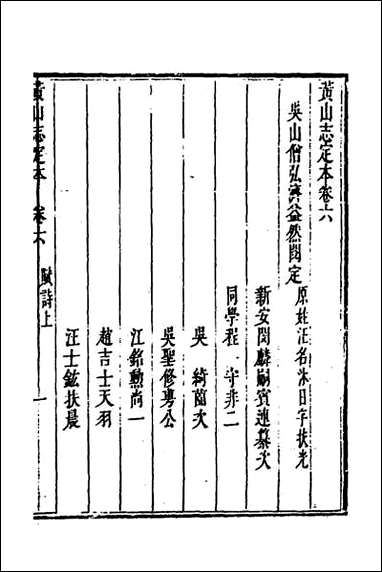 黃山志定本卷六
吳山僧弘濟益然閱定
原姓汪名沐日字扶光
新安閔麟嗣賓連纂次
同學程守非二
吳綺薗次
吳聖修粤公
江銘勲尚一
趙吉士天羽
汪士鈜扶晨
黃山志定本 卷六 賦詩上 一